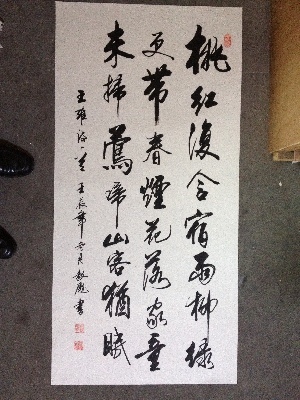 桃紅復含宿雨柳綠
更帶春煙花落家童
未掃鶯啼山客猶眠
王維詩一首 壬辰年 月 書